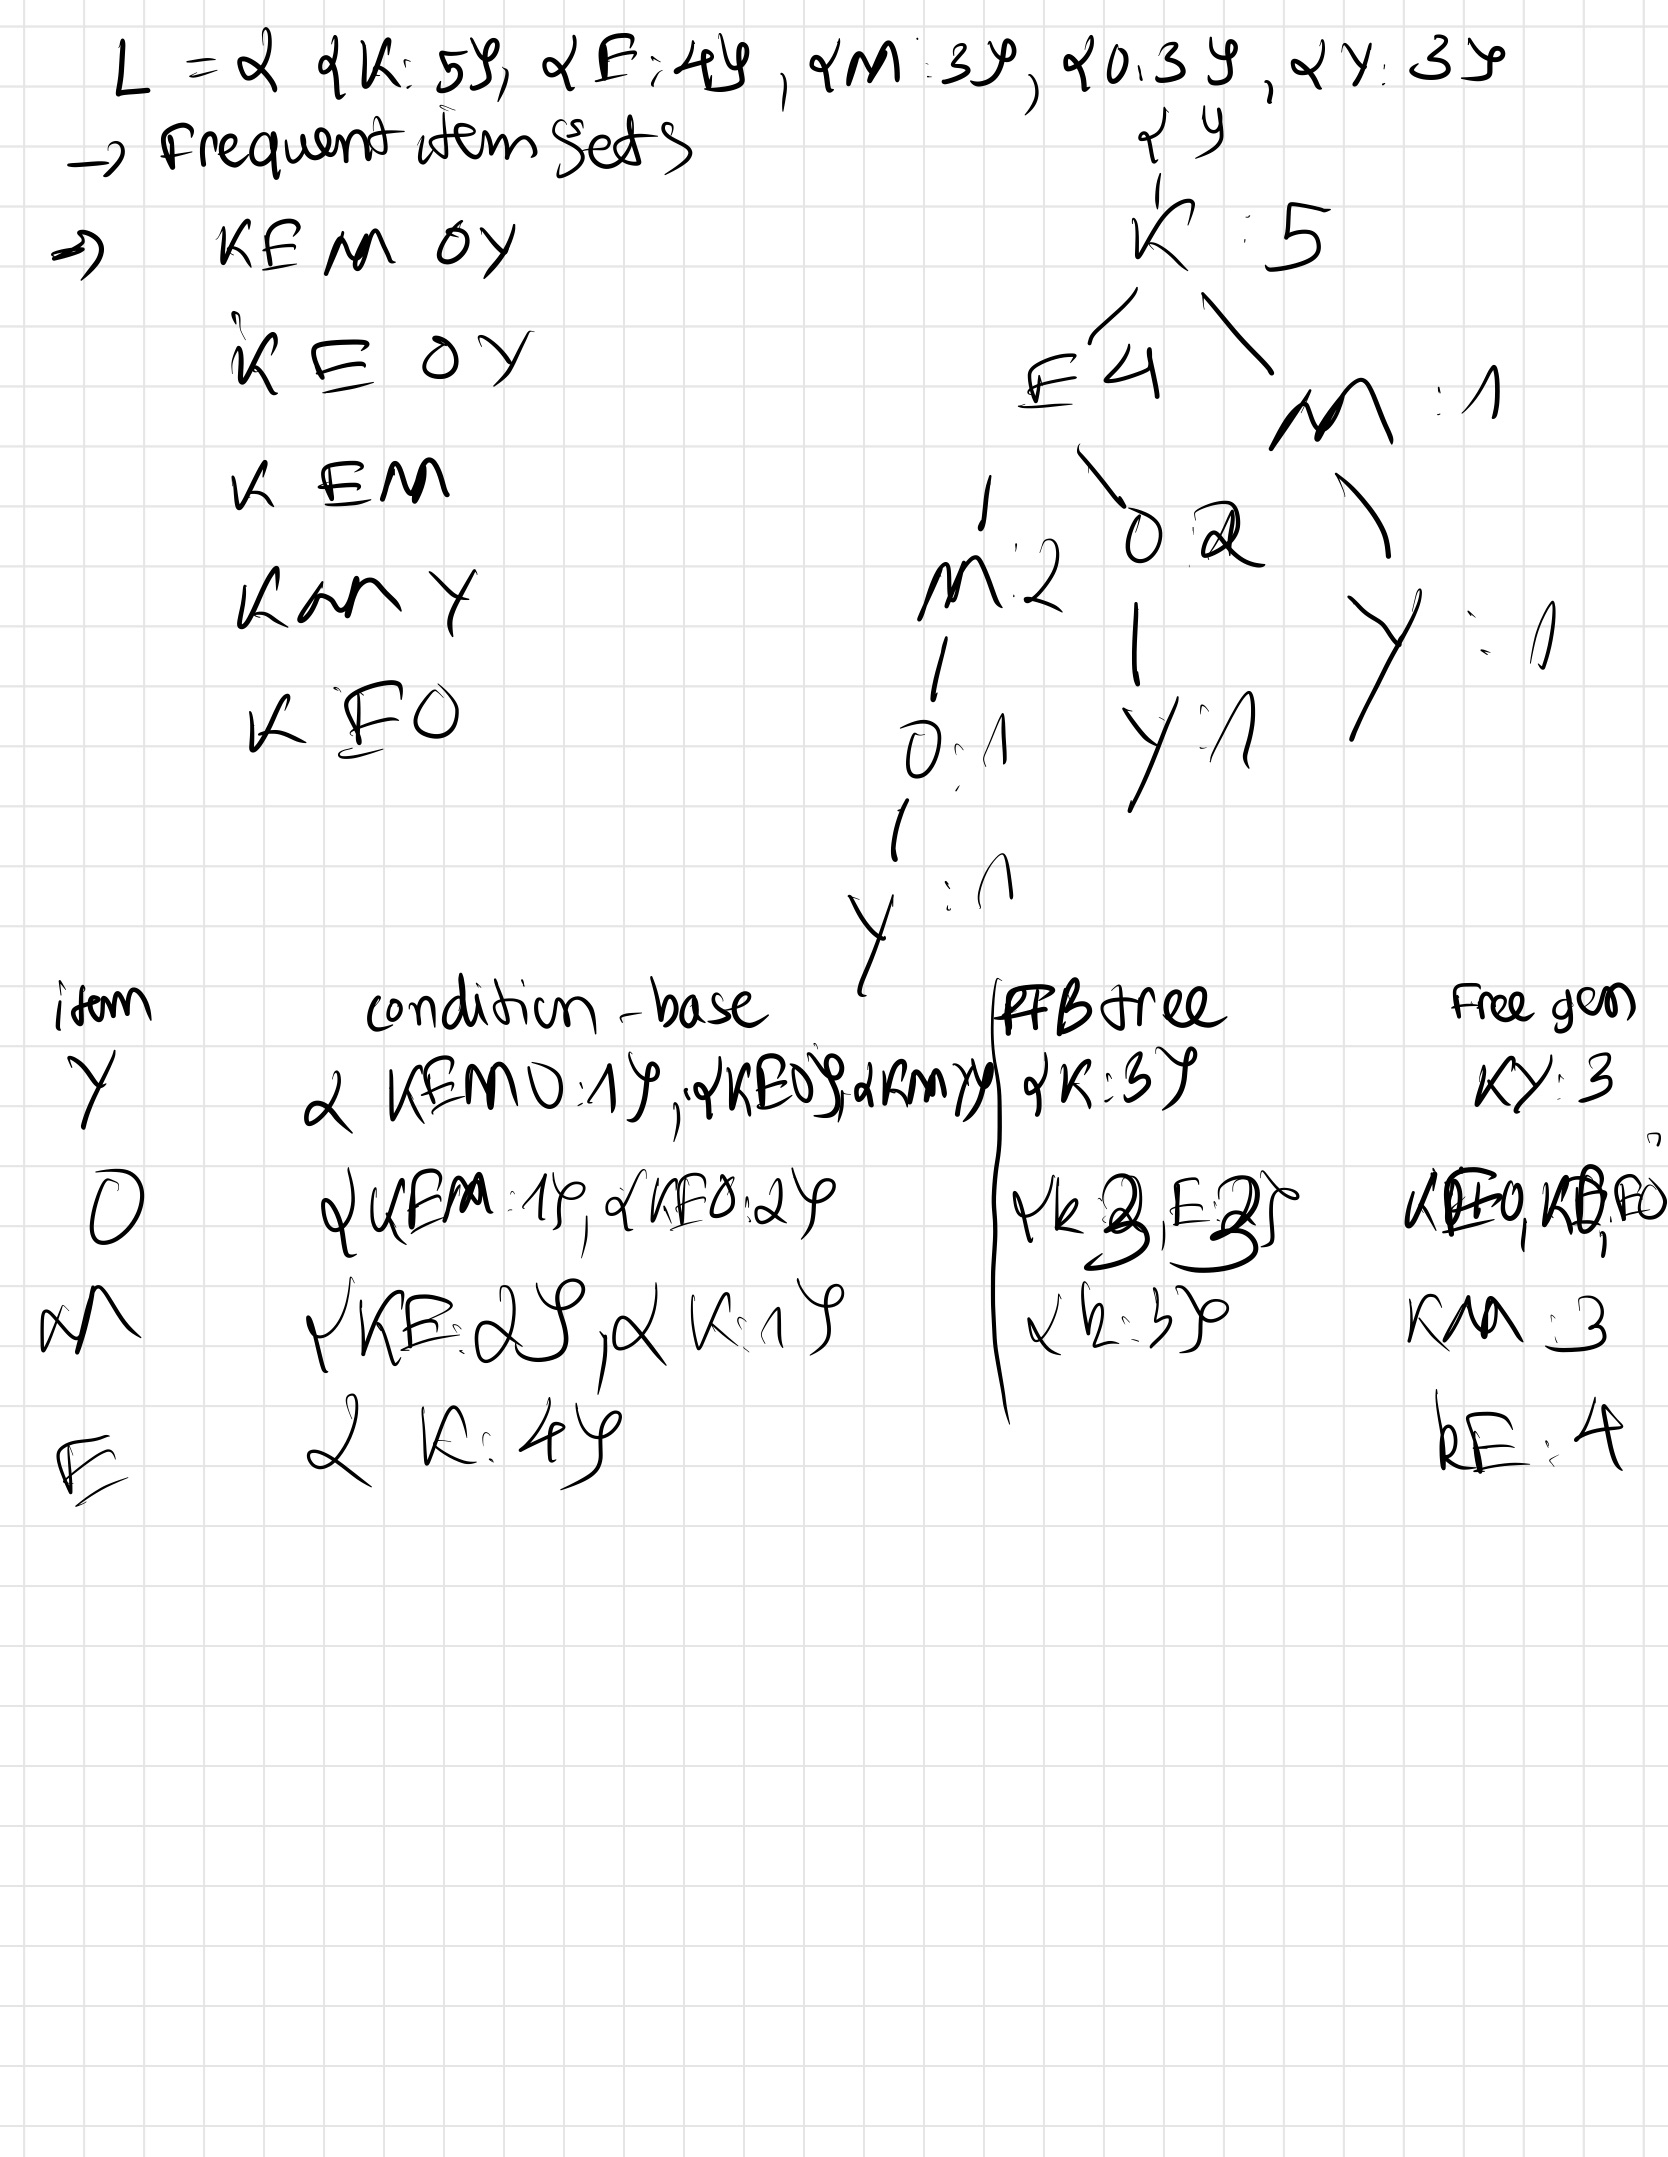 L = { {K: 5}, {E: 4}, {M: 3}, {O: 3}, {Y: 3}
→ Frequent item sets
{ }
⇒ KEMOY
K: 5
KEOY
E 4
M: 1
KEM
M: 2
O 2
KMY
Y: 1
KEO
O: 1
Y: 1
Y: 1
item condition-base tree Free gen
Y { KEMO: 1}, {KEO}, {KMY} {K: 3} KY: 3
O {KEM: 1}, {KEO: 2} {K 3, E 3} KEO, KO, EO
M {KE: 2}, {K: 1} {K: 3} KM: 3
E { K: 4} KE: 4